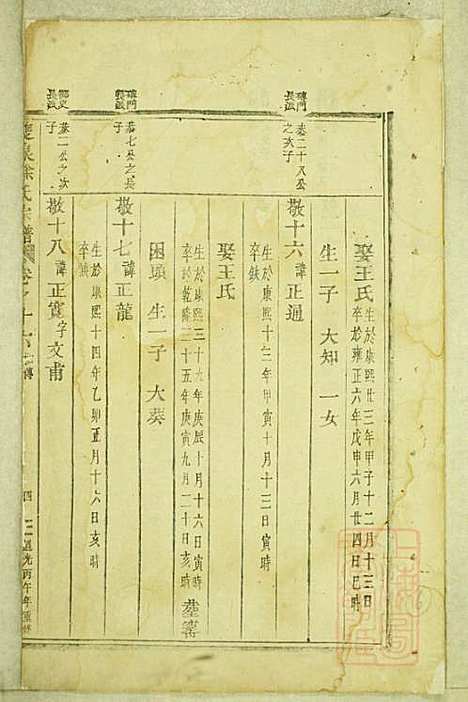 娶王氏
生於康熙廿三年甲子十二月十三日
卒於雍正六年戊申六月廿四日巳時
生一子 大知 一女
璋門長派
恭二十八公之次子
敬十六 諱正通
生於康熙十三年甲寅十月十三日寅時
卒缺
娶王氏
生於康熙三十九年庚辰十月十六日寅時
卒於乾隆三十五年庚寅九月二十日亥時
生一子 大葵
恭七公之長子
敬十七 諱正龍
生於康熙十四年乙卯五月十六日亥時
卒缺
長派
恭二公之次子
敬十八 諱正寬 字文甫
徐氏宗譜 卷之十六
四
道光丙午年重修